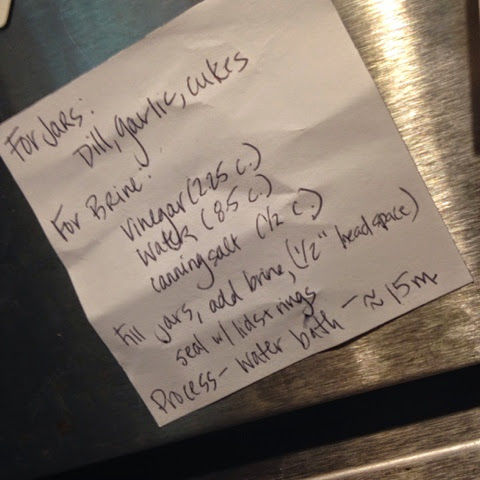 For Jars:
Dill, garlic, cukes
For Brine:
Vinegar (2.25 c.)
Water (8.5 c.)
canning salt (1/2 c.)
Fill jars, add brine, (1/2" head space)
seal w/ lids + rings
Process - water bath - ≈ 15m